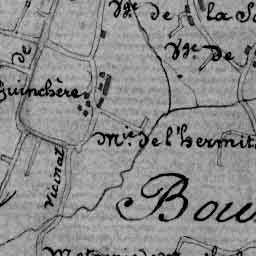 Vge. de la
Vge. de
de
Guinchère
Mie. de l'hermit
vicinal
Bou